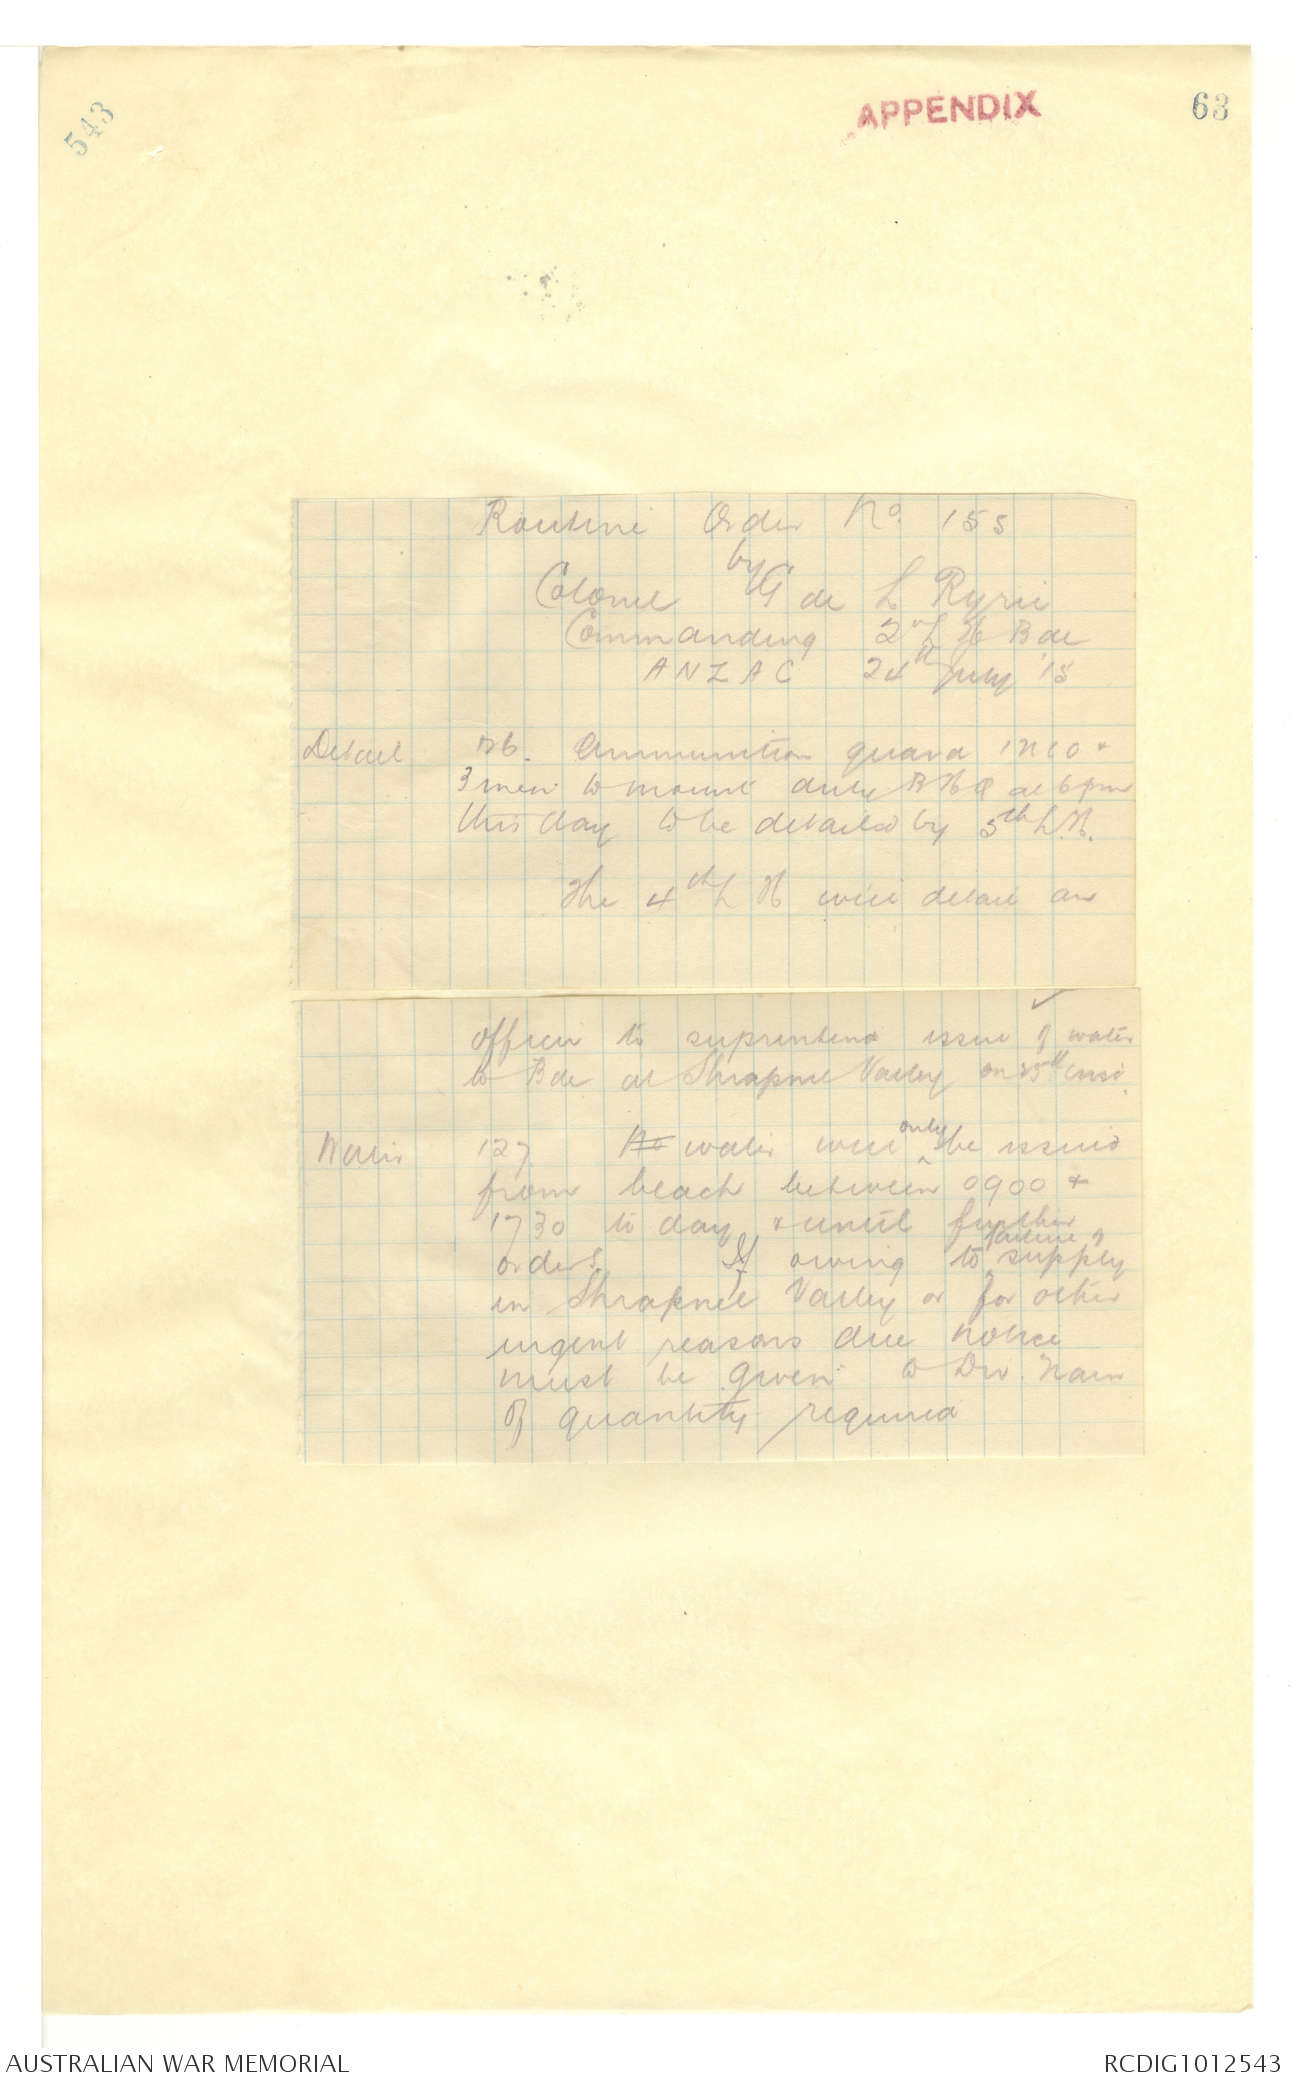 543
APPENDIX
63
Routine Order No. 155
by
Colonel G de L Ryrie
Commanding 2nd L H Bde
ANZAC 24th July '15
Detail 126. Ammunition guard 1 NCO &
3 men to mount duty BHQ at 6 pm
this day to be detailed by 5th L.H.
The 4th L H will detail an
officer to suprintend issue of water
to Bde at Shrapnel Valley on 25th inst.
Water 127 No water will only be issued
from beach between 0900 &
1730 to day & until further
orders. If owing to failure of supply
in Shrapnel Valley or for other
urgent reasons due notice
must be given to Div.
of quantity required
AUSTRALIAN WAR MEMORIAL
RCDIG1012543